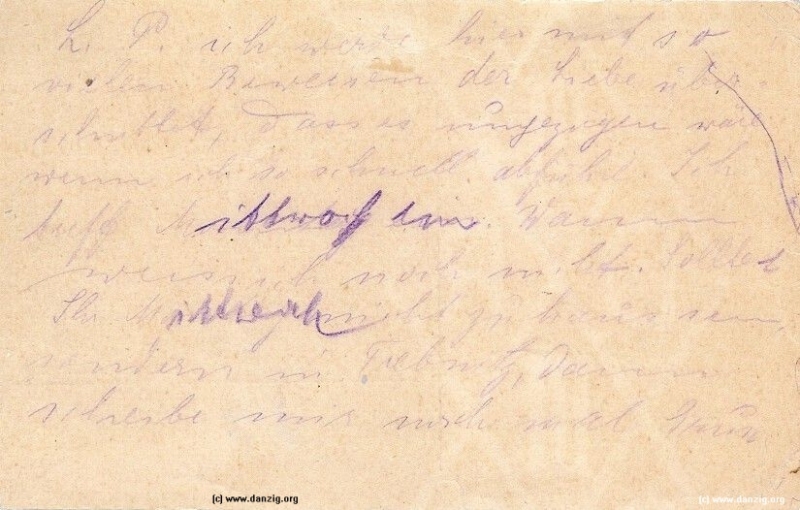 L. P. ich werde hier mit so
vielen Beweisen der Liebe über
schüttet, dass es ungezogen wäre
wenn ich so schnell abführe. Ich
treff Mittwoch ein. Wann
weiss ich noch nicht. Solltet
Ihr Mittwoch nicht zu haus sein,
sondern in, dann
schreibe mir noch mal
(c) www.danzig.org
(c) www.danzig.org